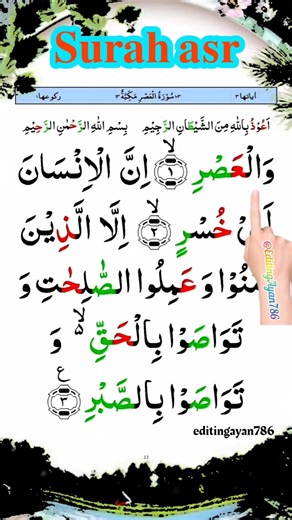 Surah asr
اٰیاتها ۳ ۱۰۳ سُوْرَةُ الْعَصْرِ مَكِّيَّةٌ ۱۳ ركوعها ۱
اَعُوْذُ بِاللّٰهِ مِنَ الشَّيْطٰانِ الرَّجِيْمِ بِسْمِ اللّٰهِ الرَّحْمٰنِ الرَّحِيْمِ
وَالْعَصْرِ ۙ﴿۱﴾ اِنَّ الْاِنْسَانَ
خُسْرٍ ۙ﴿۲﴾ اِلَّا الَّذِيْنَ
وَ عَمِلُوا الصّٰلِحٰتِ وَ
تَوَاصَوْا بِالْحَقِّ ۙ وَ
تَوَاصَوْا بِالصَّبْرِ ﴿۳﴾ ع
@EditingAyan786
editingayan786